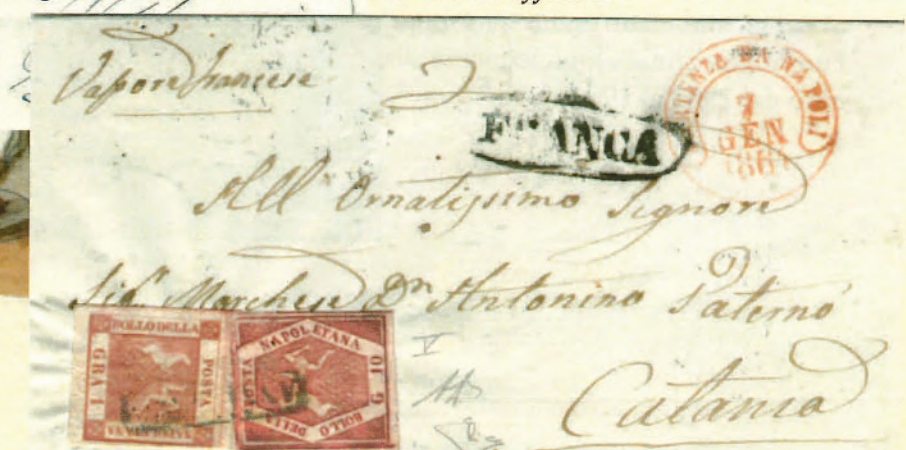 Vapore francese
FRANCA
PARTENZA DA NAPOLI
7
GEN
All Ornatissimo Signore
Sig.r Marchese Dn Antonino Paternó
Catania
BOLLO DELLA
POSTA
NAPOLETANA
GRA 1
BOLLO
DELLA
POSTA
NAPOLETANA
G 10